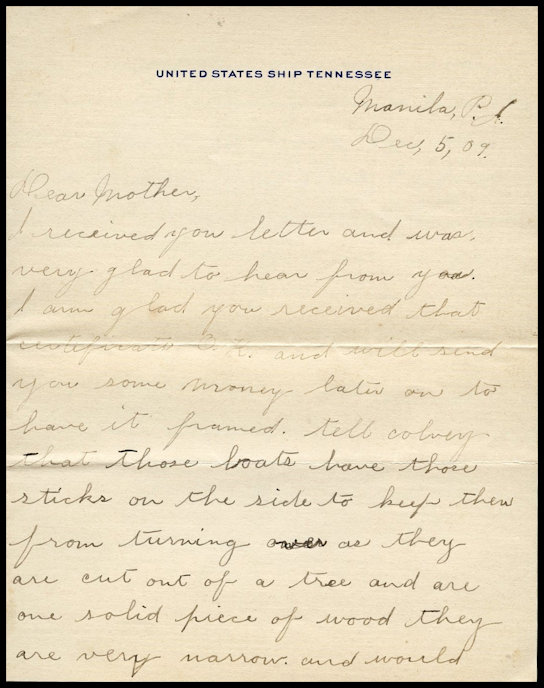 UNITED STATES SHIP TENNESSEE
Manila, P.I.
Dec, 5, 09.
Dear Mother,
I received you letter and was.
very glad to hear from you.
I am glad you received that
certificate O.K. and will send
you some money later on to
have it framed. tell colvey
that those boats have those
sticks on the side to keep them
from turning over as they
are cut out of a tree and are
one solid piece of wood they
are very narrow. and would